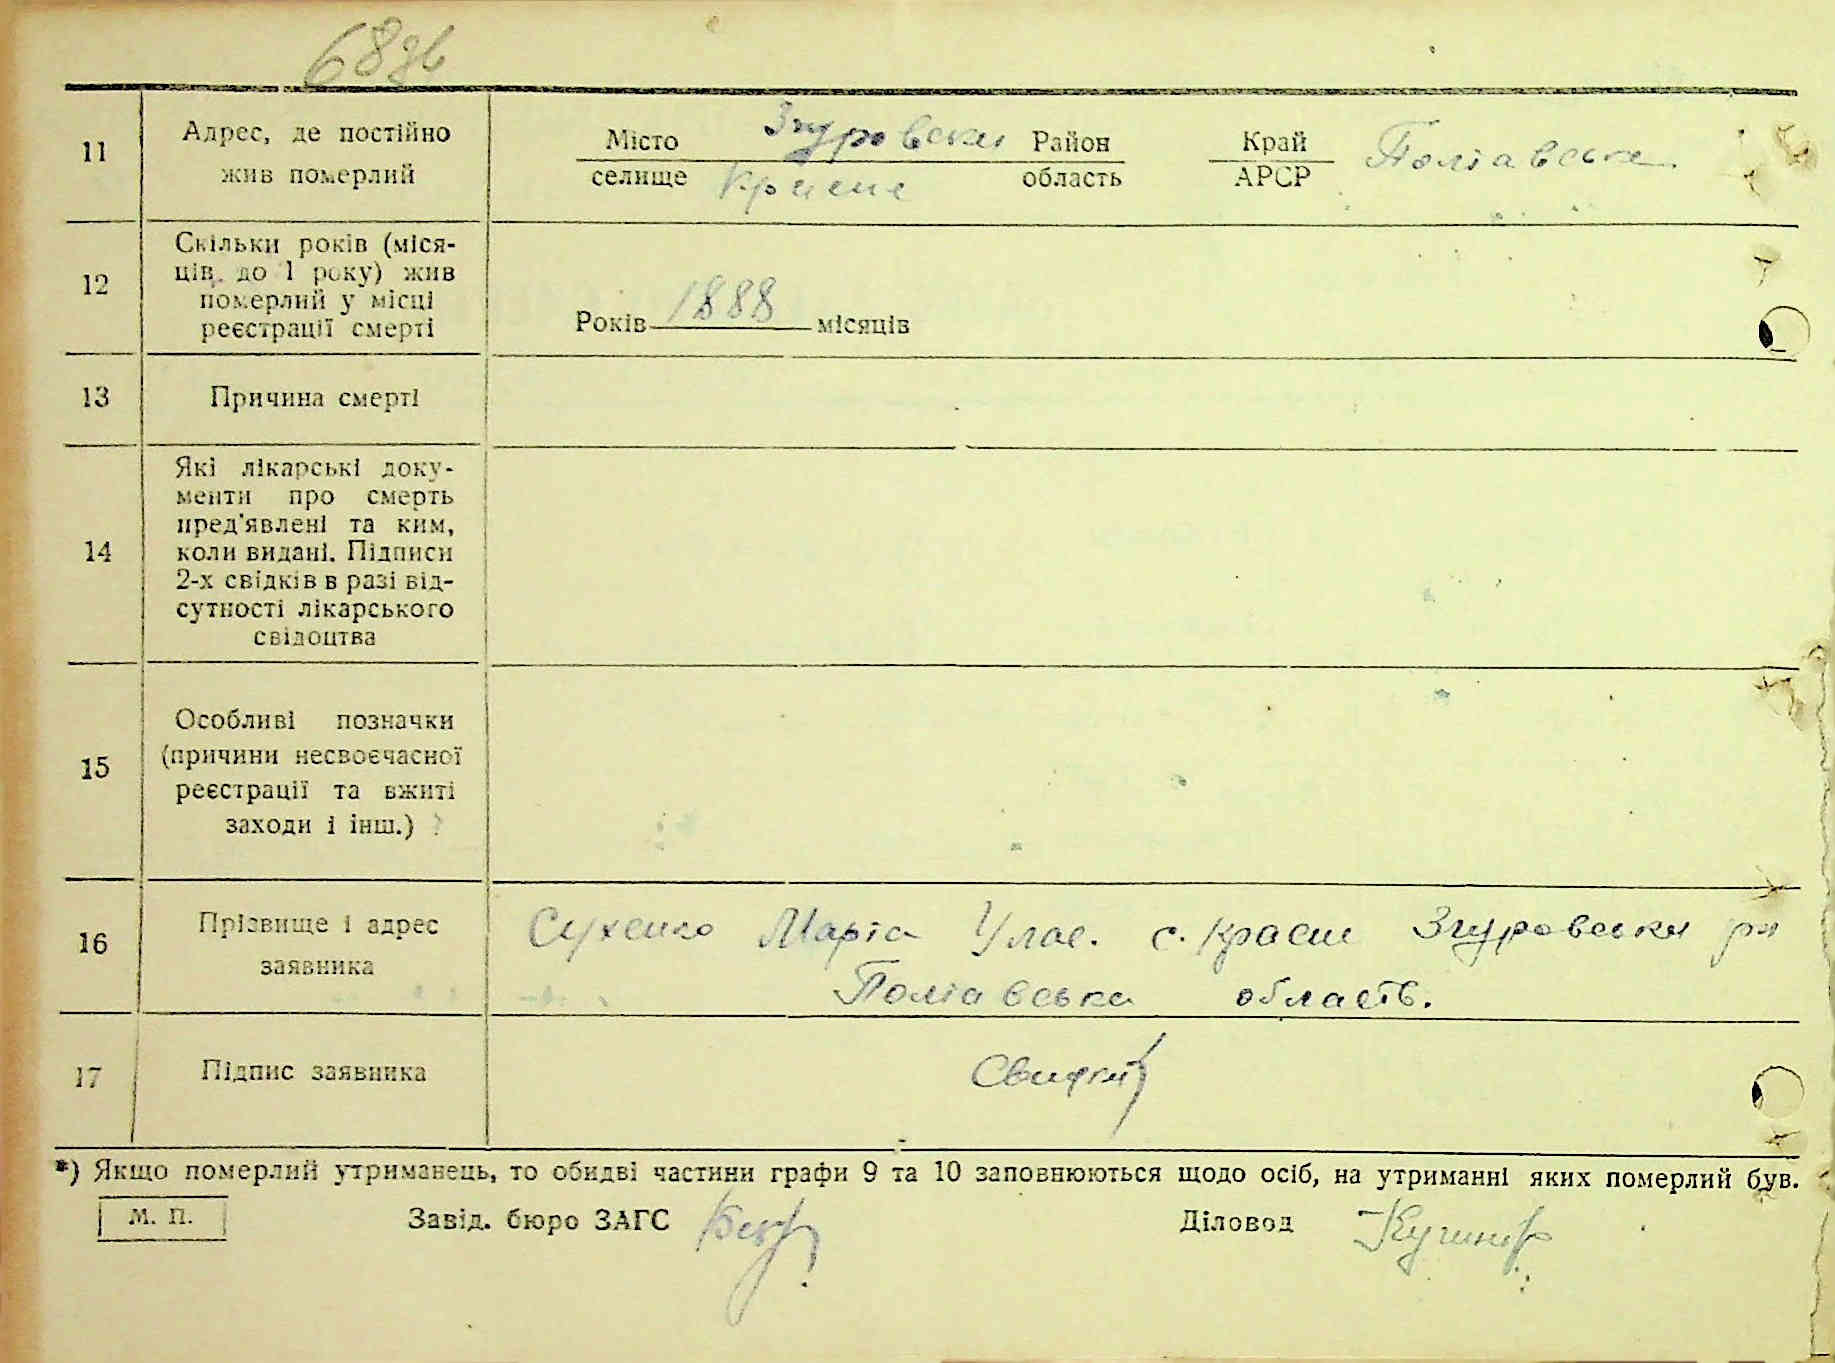 68зв
11 Адрес, де постійно жив померлий
Місто Згуровський Район Край Полтавська
селище Красне область АРСР
12 Скільки років (міся-
ців до 1 року) жив
померлий у місці
реєстрації смерті
Років 1888 місяців
13 Причина смерті
14 Які лікарські доку-
менти про смерть
пред'явлені та ким,
коли видані. Підписи
2-х свідків в разі від-
сутності лікарського
свідоцтва
15 Особливі позначки
(причини несвоєчасної
реєстрації та вжиті
заходи і інш.)
16 Прізвище і адрес
заявника
Сухенко Марія Улас. с. Красне Згуровський р-н
Полтавська область.
17 Підпис заявника
*) Якщо померлий утриманець, то обидві частини графи 9 та 10 заповнюються щодо осіб, на утриманні яких померлий був.
М. П. Завід. бюро ЗАГС Діловод Кушнір